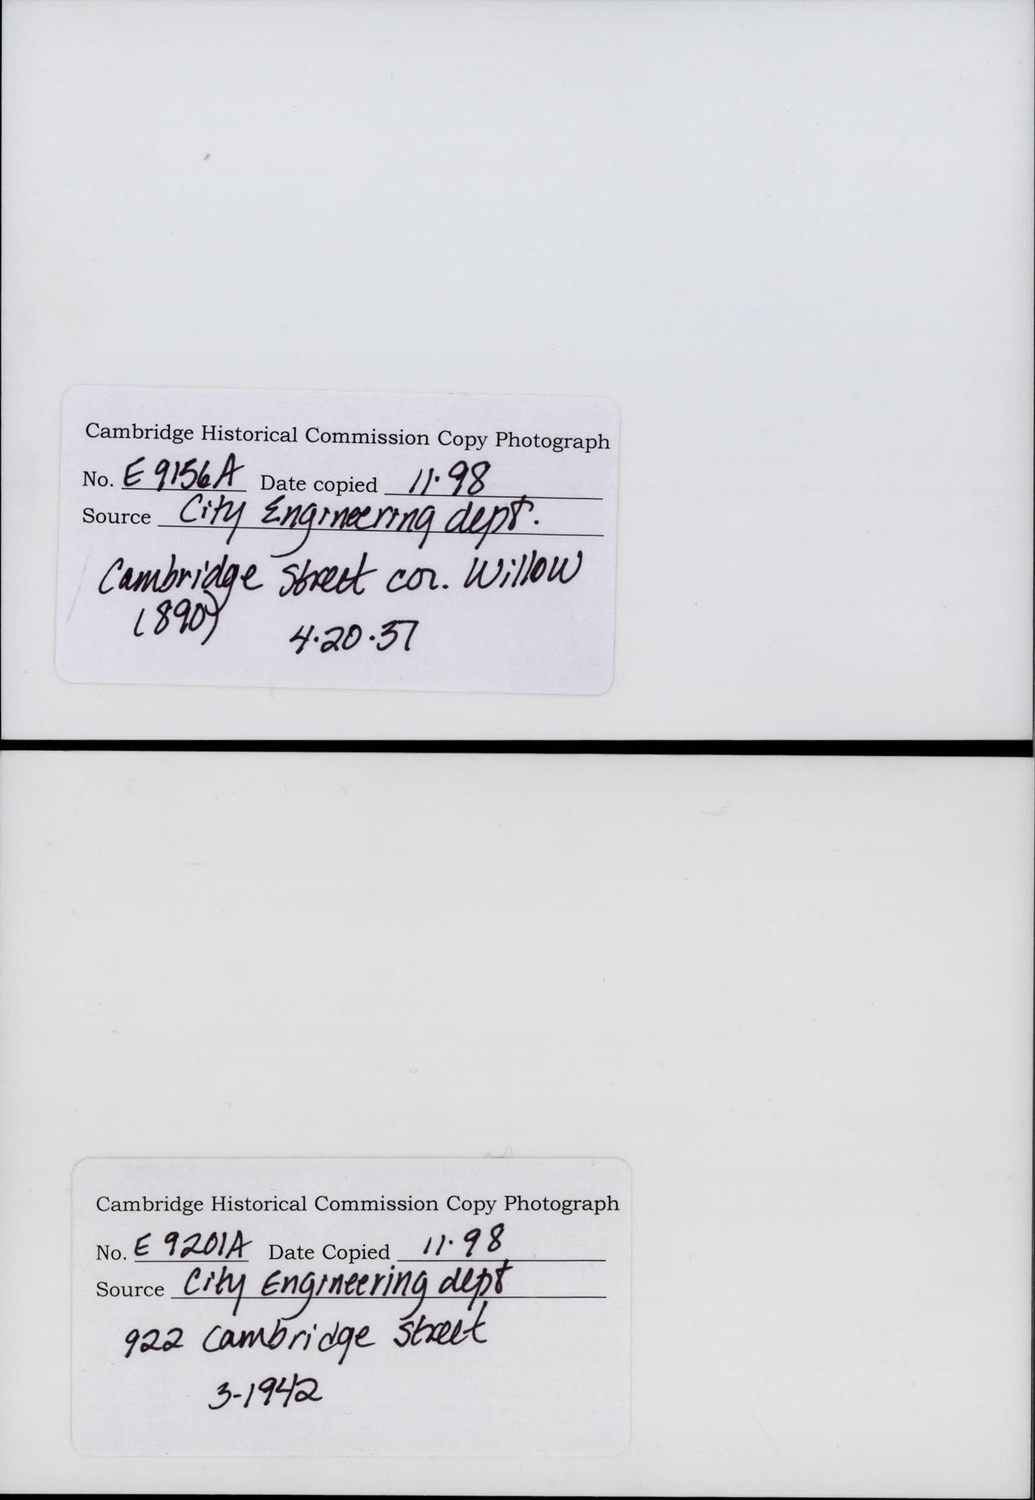 Cambridge Historical Commission Copy Photograph
No. E 9156A Date copied 11·98
Source City Engineering dept.
Cambridge Street cor. Willow
(890)
4·20·37
Cambridge Historical Commission Copy Photograph
No. E 9201A Date Copied 11·98
Source City Engineering dept
922 Cambridge Street
3-1942